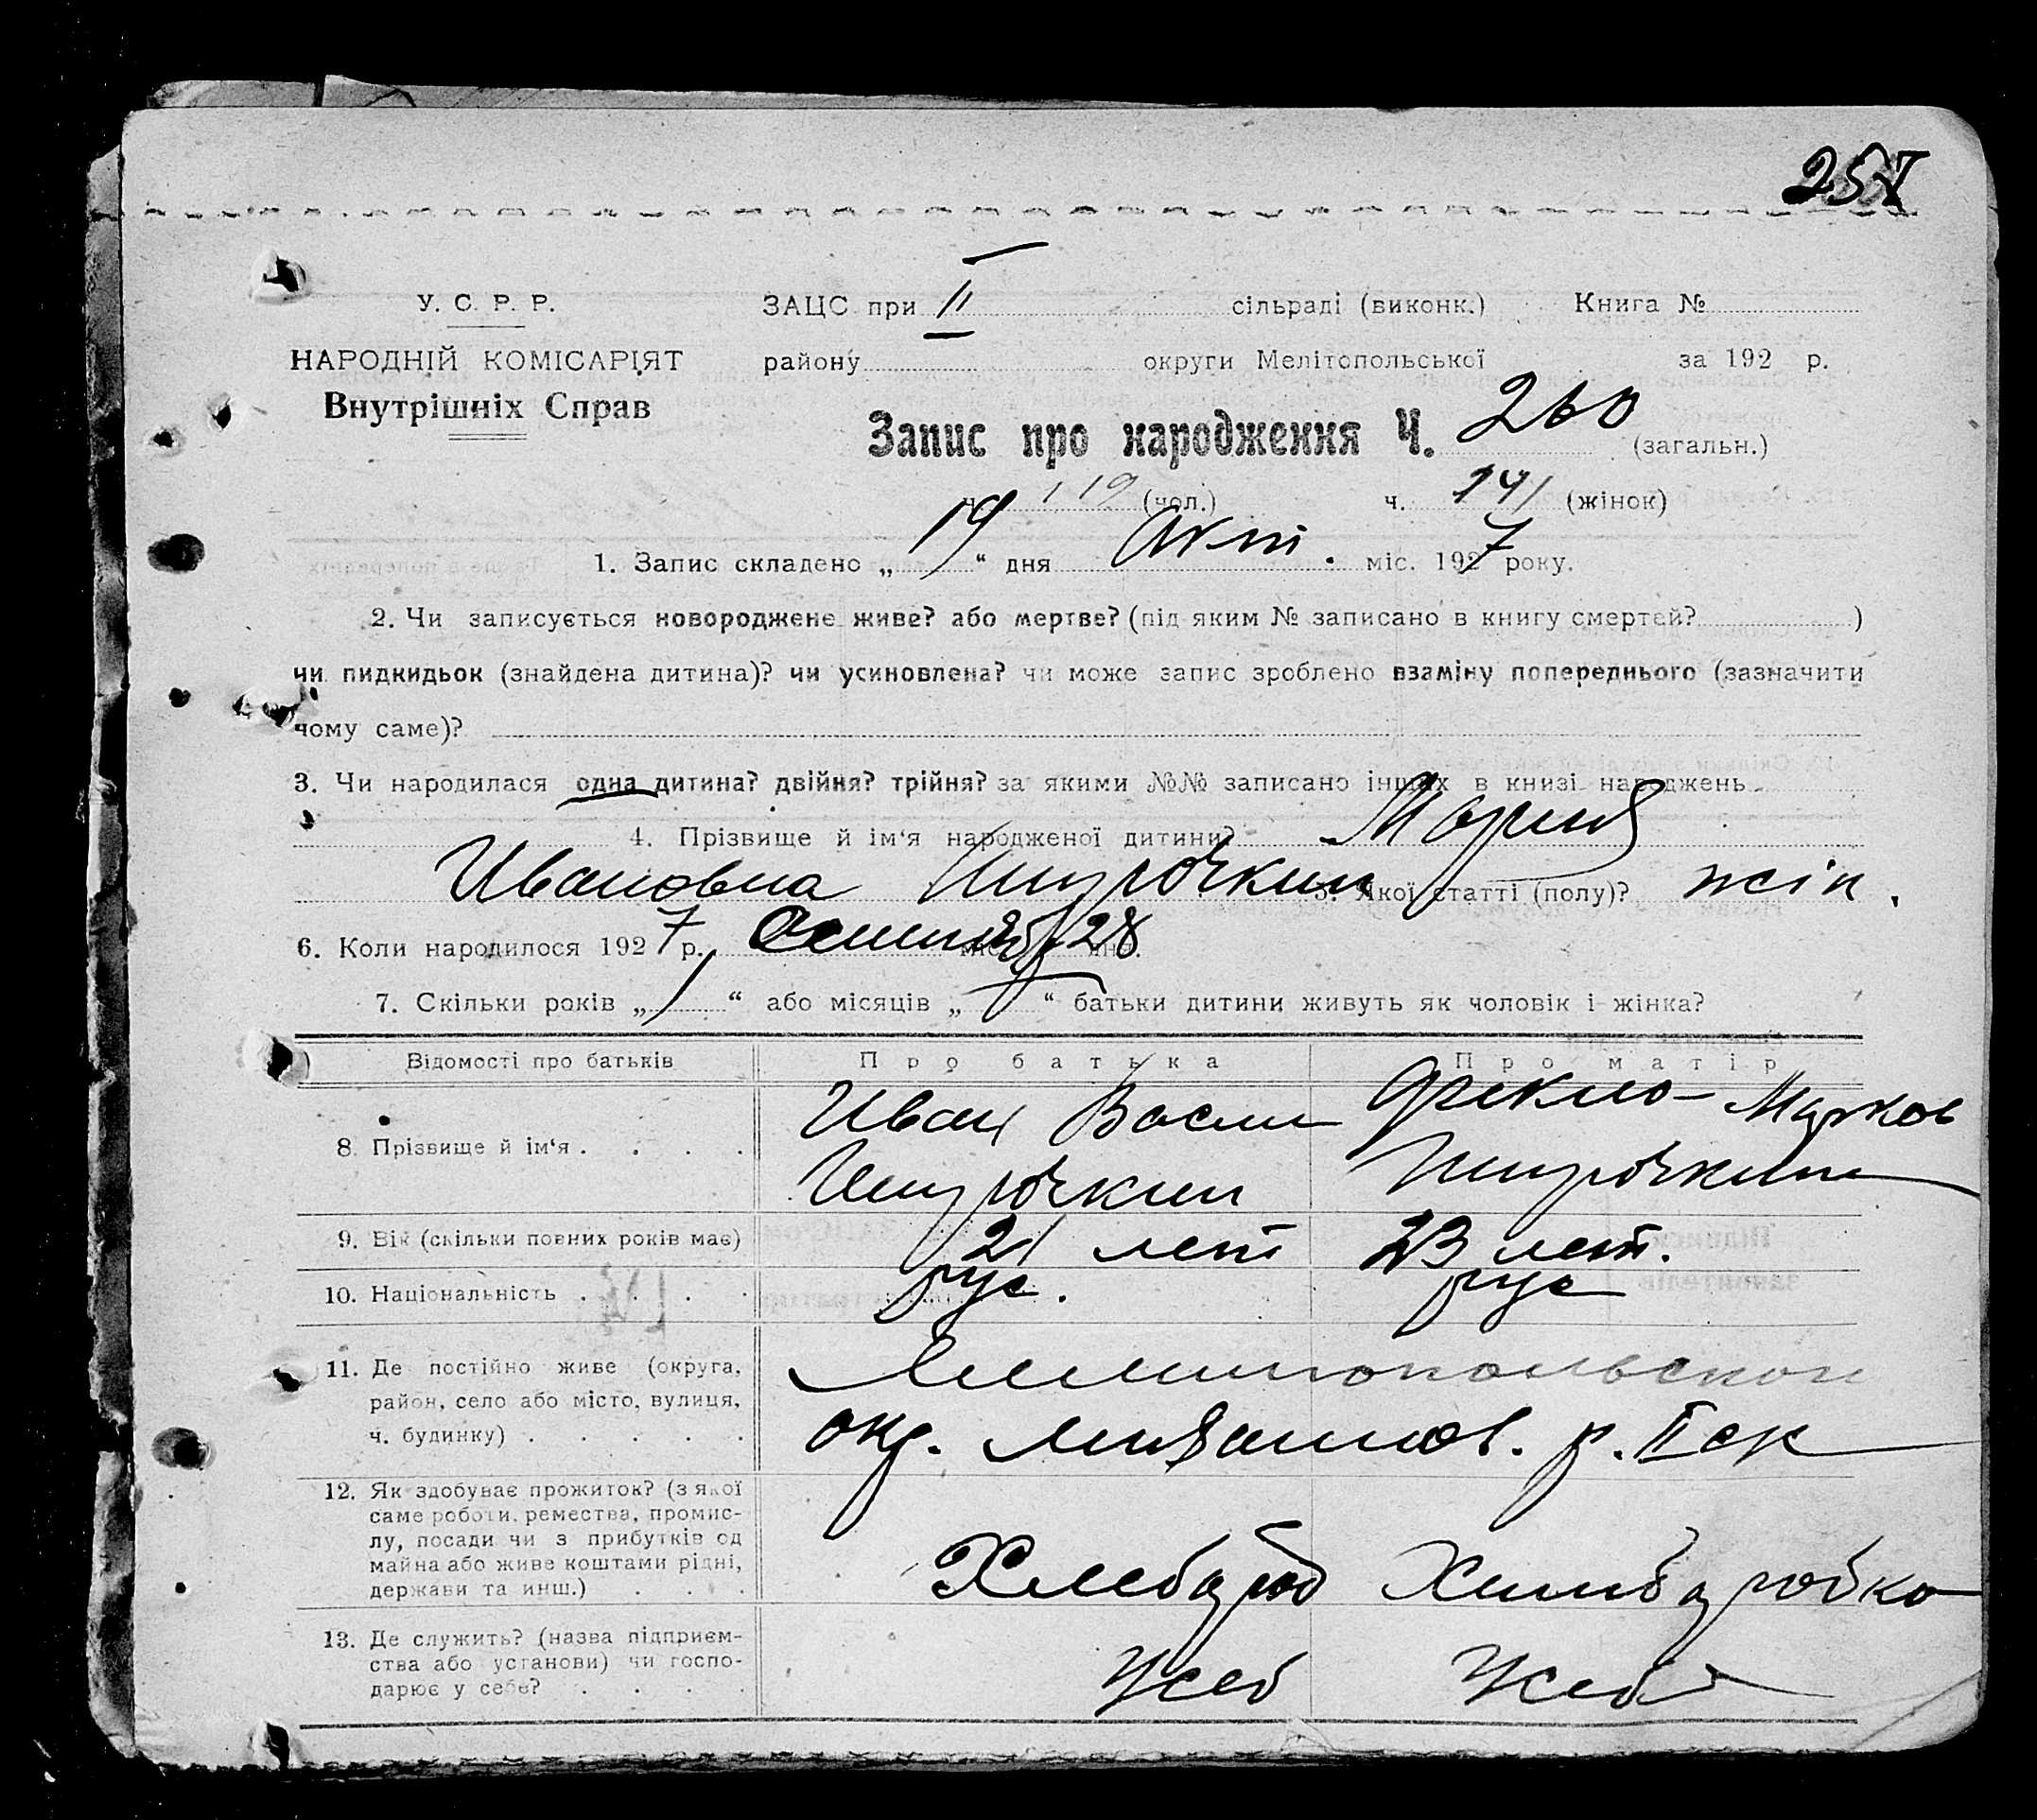 257
У. С. Р. Р. ЗАЦС при II сільраді (виконк.) Книга №
НАРОДНІЙ КОМІСАРІЯТ району округи Мелітопольської за 192 р.
Внутрішніх Справ
Запис про народження Ч. 260 (загальн.)
ч. 119 (чол.) ч. 141 (жінок)
1. Запис складено „ 19 “ дня Окт. міс. 1927 року.
2. Чи записується новороджене живе? або мертве? (під яким № записано в книгу смертей? )
чи пидкидьок (знайдена дитина)? чи усиновлена? чи може запис зроблено взаміну попереднього (зазначити
чому саме)?
3. Чи народилася одна дитина? двійня? трійня? за якими №№ записано інших в книзі народжень
4. Прізвище й ім‘я народженої дитини? Мария
Ивановна 5. Якої статті (полу)? жін.
6. Коли народилося 1927 р. міс. 28 дня.
7. Скільки років „ “ або місяців „ “ батьки дитини живуть як чоловік і жінка?
Відомості про батьків Про батька Про матір
8. Прізвище й ім‘я . . . . Иван Васил Фекла Марков
9. Вік (скільки повних років має) 21 лет 23 лет.
10. Національність . . . . рус. рус
11. Де постійно живе (округа, Мелитопольской
район, село або місто, вулиця,
ч. будинку) . . . . . окр. р. II
12. Як здобуває прожиток? (з якої
саме роботи, ремества, промис-
лу, посади чи з прибутків од
майна або живе коштами рідні, Хлебороб Хлеборобка
держави та инш.) . . .
13. Де служить? (назва підприєм-
ства або установи) чи госпо-
дарює у себе? . . . . Усеб Усеб